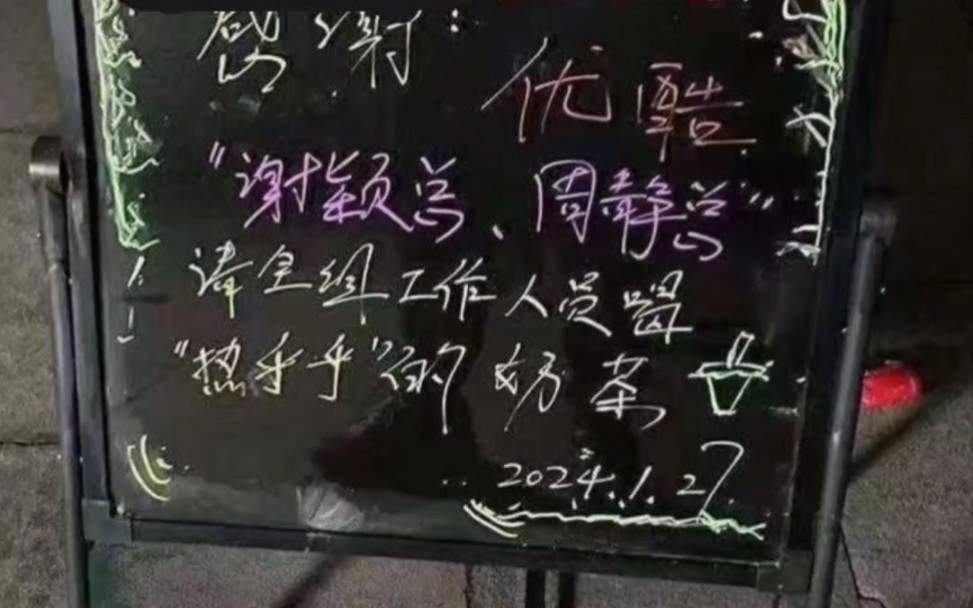 感谢：
优酷
“谢颖总、周静总”
请全组工作人员喝
“热乎乎”的奶茶
2024.1.27